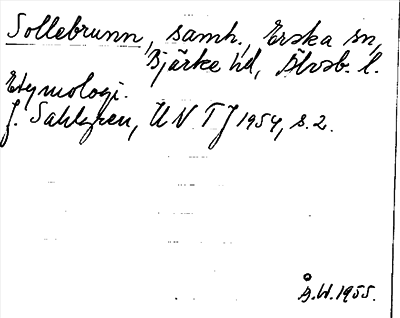 Sollebrunn, samh., Erska sn,
Bjärke hd, Älvsb. l.
Etymologi.
J. Sahlgren, UNTJ 1954, s. 2.
Å.W. 1955.